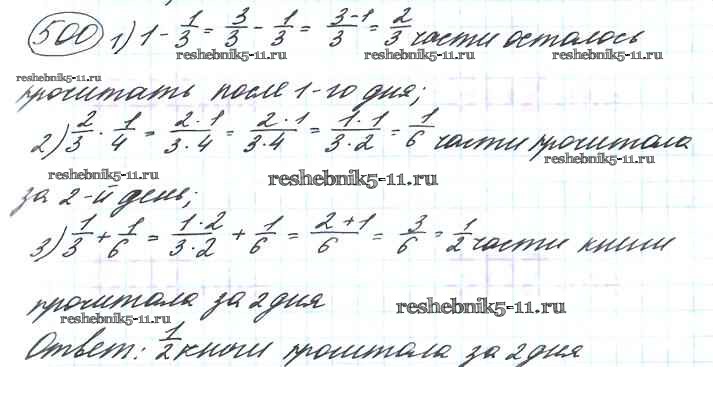 500 1) 1 - 1/3 = 3/3 - 1/3 = 3-1/3 = 2/3 части осталось
reshebnik5-11.ru reshebnik5-11.ru
reshebnik5-11.ru
прочитать после 1-го дня;
2) 2/3 · 1/4 = 2·1/3·4 = 2·1/3·4 = 1·1/3·2 = 1/6 части прочитала
reshebnik5-11.ru
reshebnik5-11.ru reshebnik5-11.ru
за 2-й день;
3) 1/3 + 1/6 = 1·2/3·2 + 1/6 = 2+1/6 = 3/6 = 1/2 части книги
прочитала за 2 дня
reshebnik5-11.ru
reshebnik5-11.ru
Ответ: 1/2 книги прочитала за 2 дня